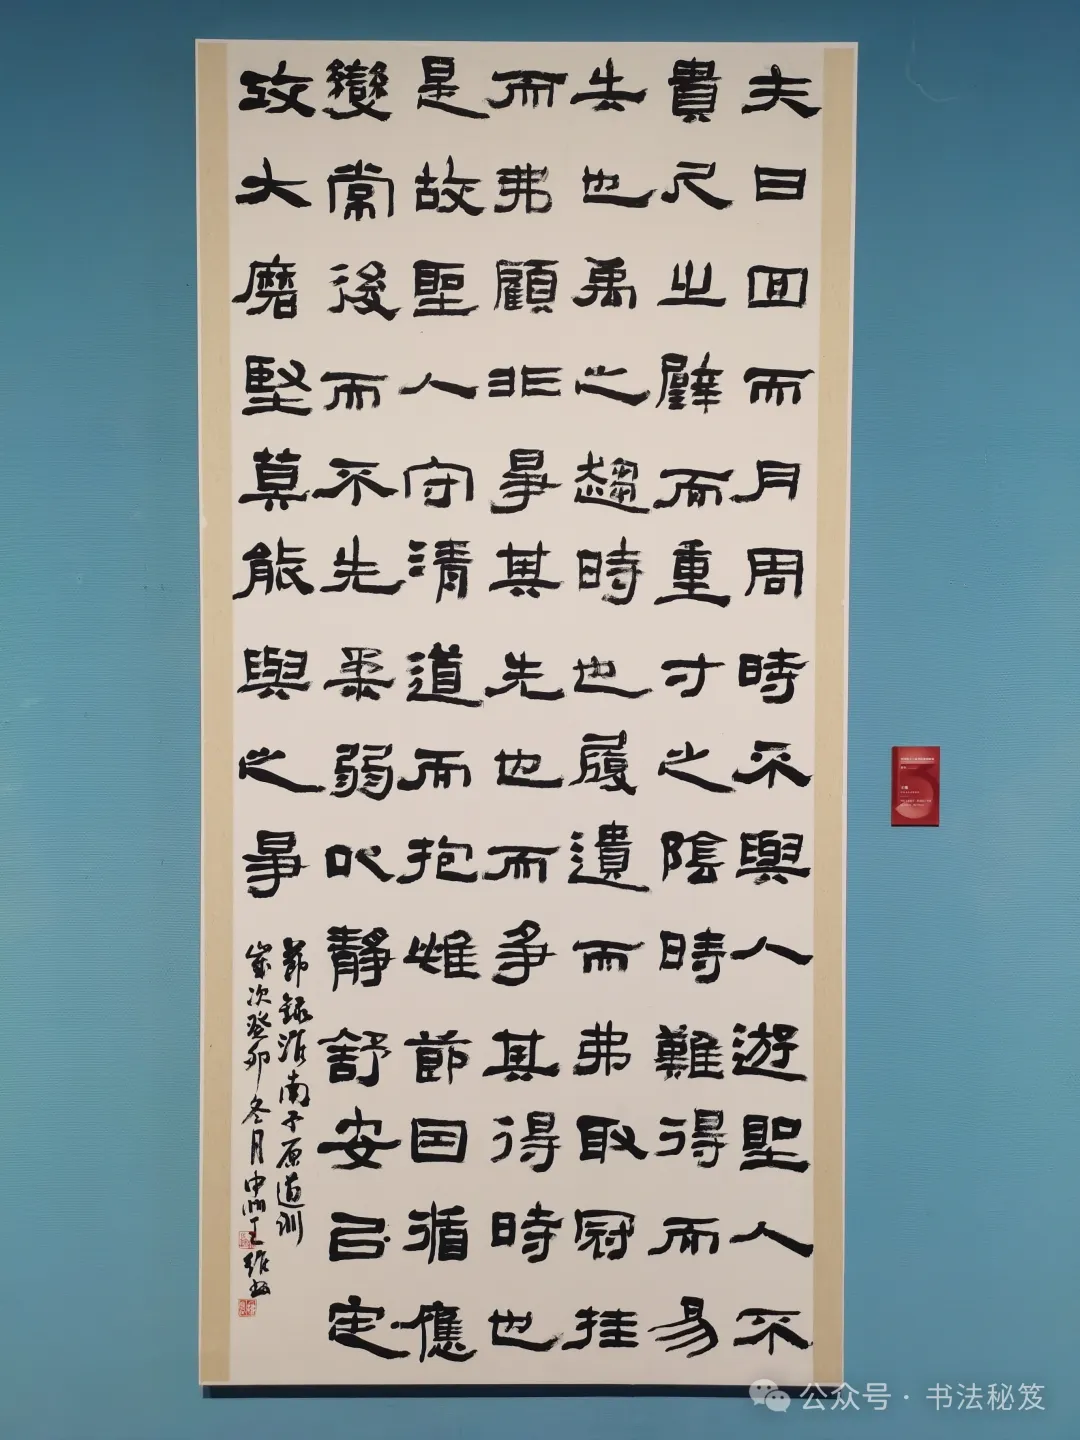 夫日回而月周時不與人遊聖人不
貴尺之璧而重寸之陰時難得而易
失也禹之趨時也履遺而弗取冠挂
而弗顧非爭其先也而爭其得時也
是故聖人守清道而抱雌節因循應
變常後而不先柔弱以靜舒安以定
攻大磨堅莫能與之爭
節錄淮南子原道訓
歲次癸卯冬月中州王維
公众号 · 书法秘笈